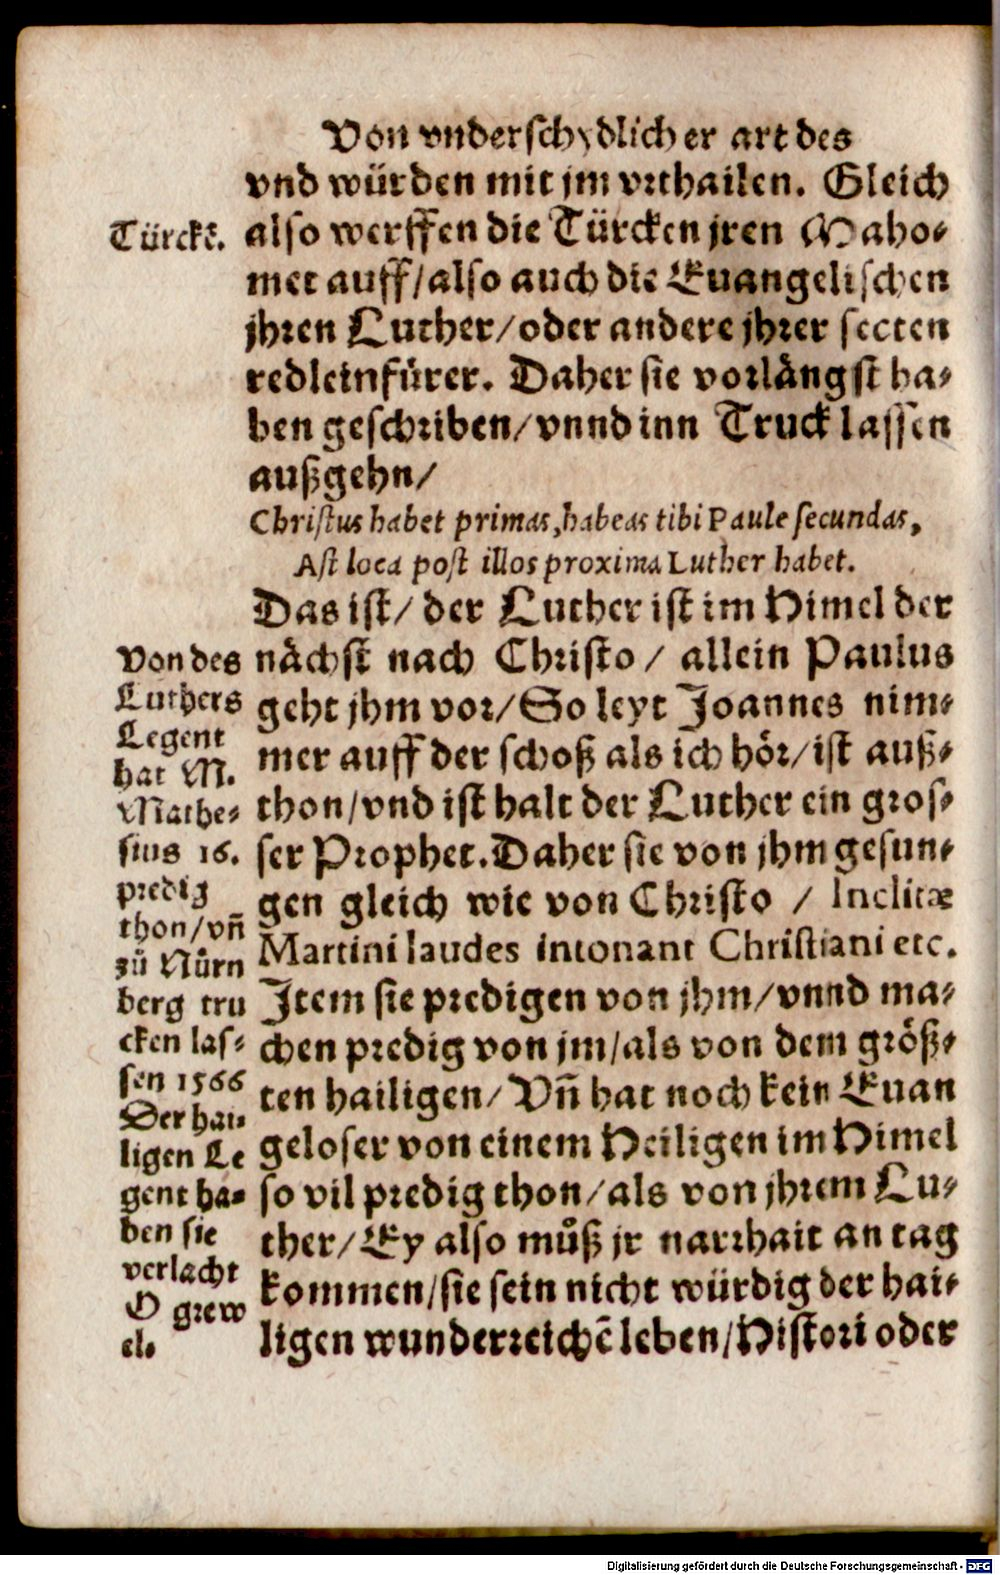 Von vnderschydlicher art des
vnd würden mit jm vrthailen. Gleich
also werffen die Türcken jren Maho-
met auff/also auch die Euangelischen
jhren Luther/oder andere jhrer secten
redleinfürer. Daher sie vorlängst ha-
ben geschriben/vnnd inn Truck lassen
außgehn/
Christus habet primas, habeas tibi Paule secundas,
Ast loca post illos proxima Luther habet.
Das ist/ der Luther ist im Himel der
nächst nach Christo/ allein Paulus
geht jhm vor/So leyt Joannes nim-
mer auff der schoß als ich hör/ist auß-
thon/vnd ist halt der Luther ein gros-
ser Prophet. Daher sie von jhm gesun-
gen gleich wie von Christo / Inclitæ
Martini laudes intonant Christiani etc.
Item sie predigen von jhm/vnnd ma-
chen predig von jm/als von dem größ-
ten hailigen/ Vñ hat noch kein Euan
geloser von einem Heiligen im Himel
so vil predig thon/als von jhrem Lu-
ther/Ey also můß jr narrhait an tag
kommen/sie sein nicht würdig der hai-
ligen wunderreichẽ leben/Histori oder
Türckẽ.
Von des
Luthers
Legent
hat M.
Mathe-
sius 16.
predig
thon/vñ
zů Nürn
berg tru
cken las-
sen 1566
Der hai-
ligen Le
gent ha-
ben sie
verlacht
O grew
el.
Digitalisierung gefördert durch die Deutsche Forschungsgemeinschaft - DFG